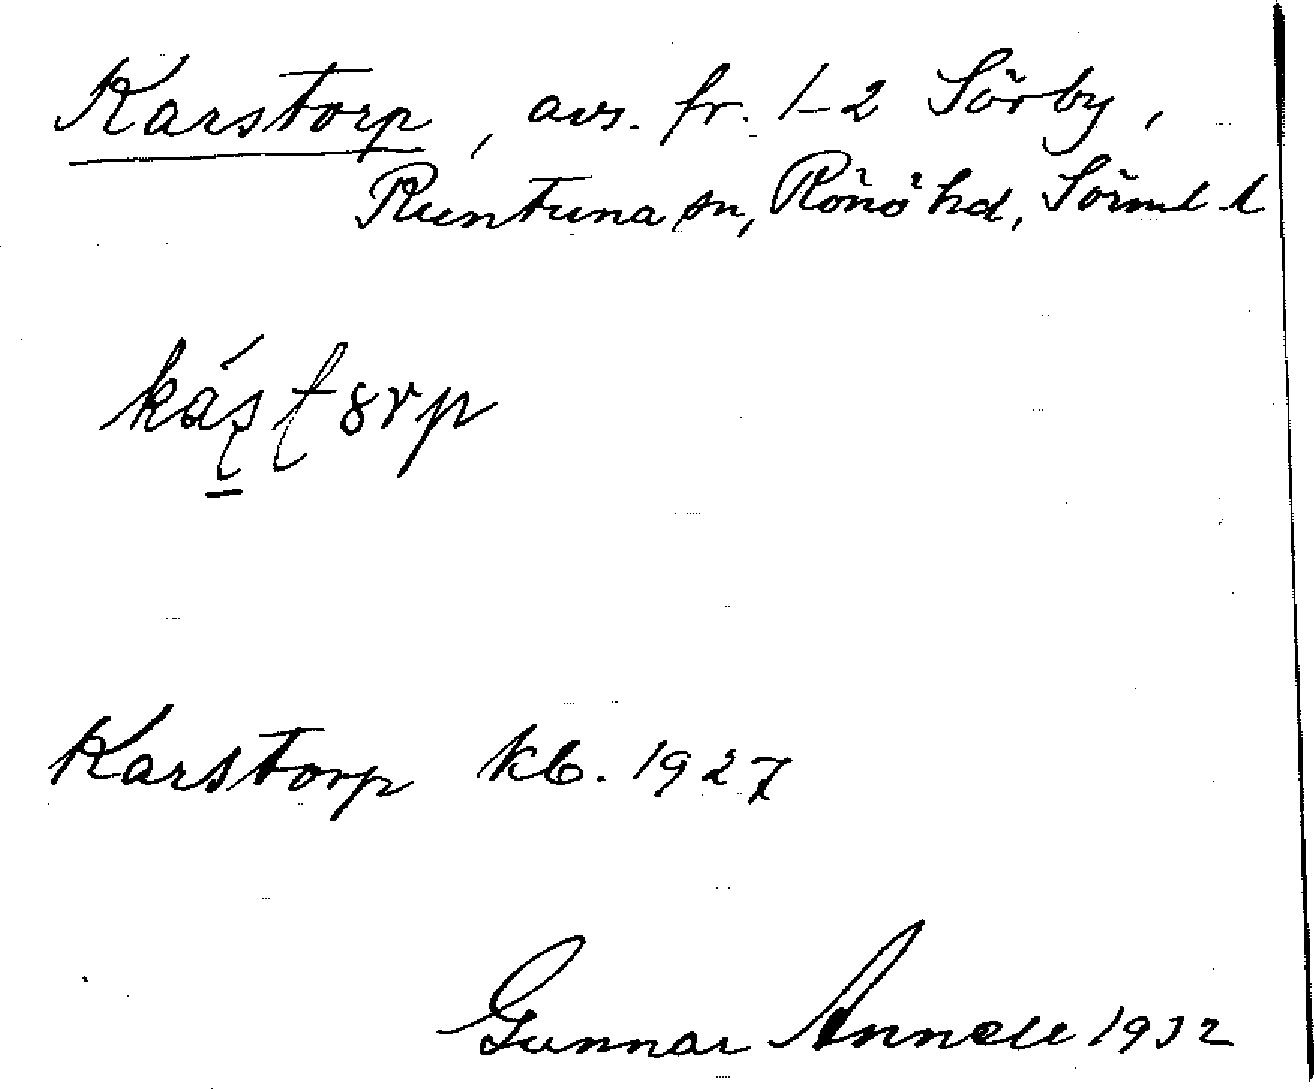 Karstorp, avs. fr. 1-2 Sörby,
Runtuna sn, Rönö hd, Sörml l
káʂʈ8rp
Karstorp kb. 1927
Gunnar Annell 1932